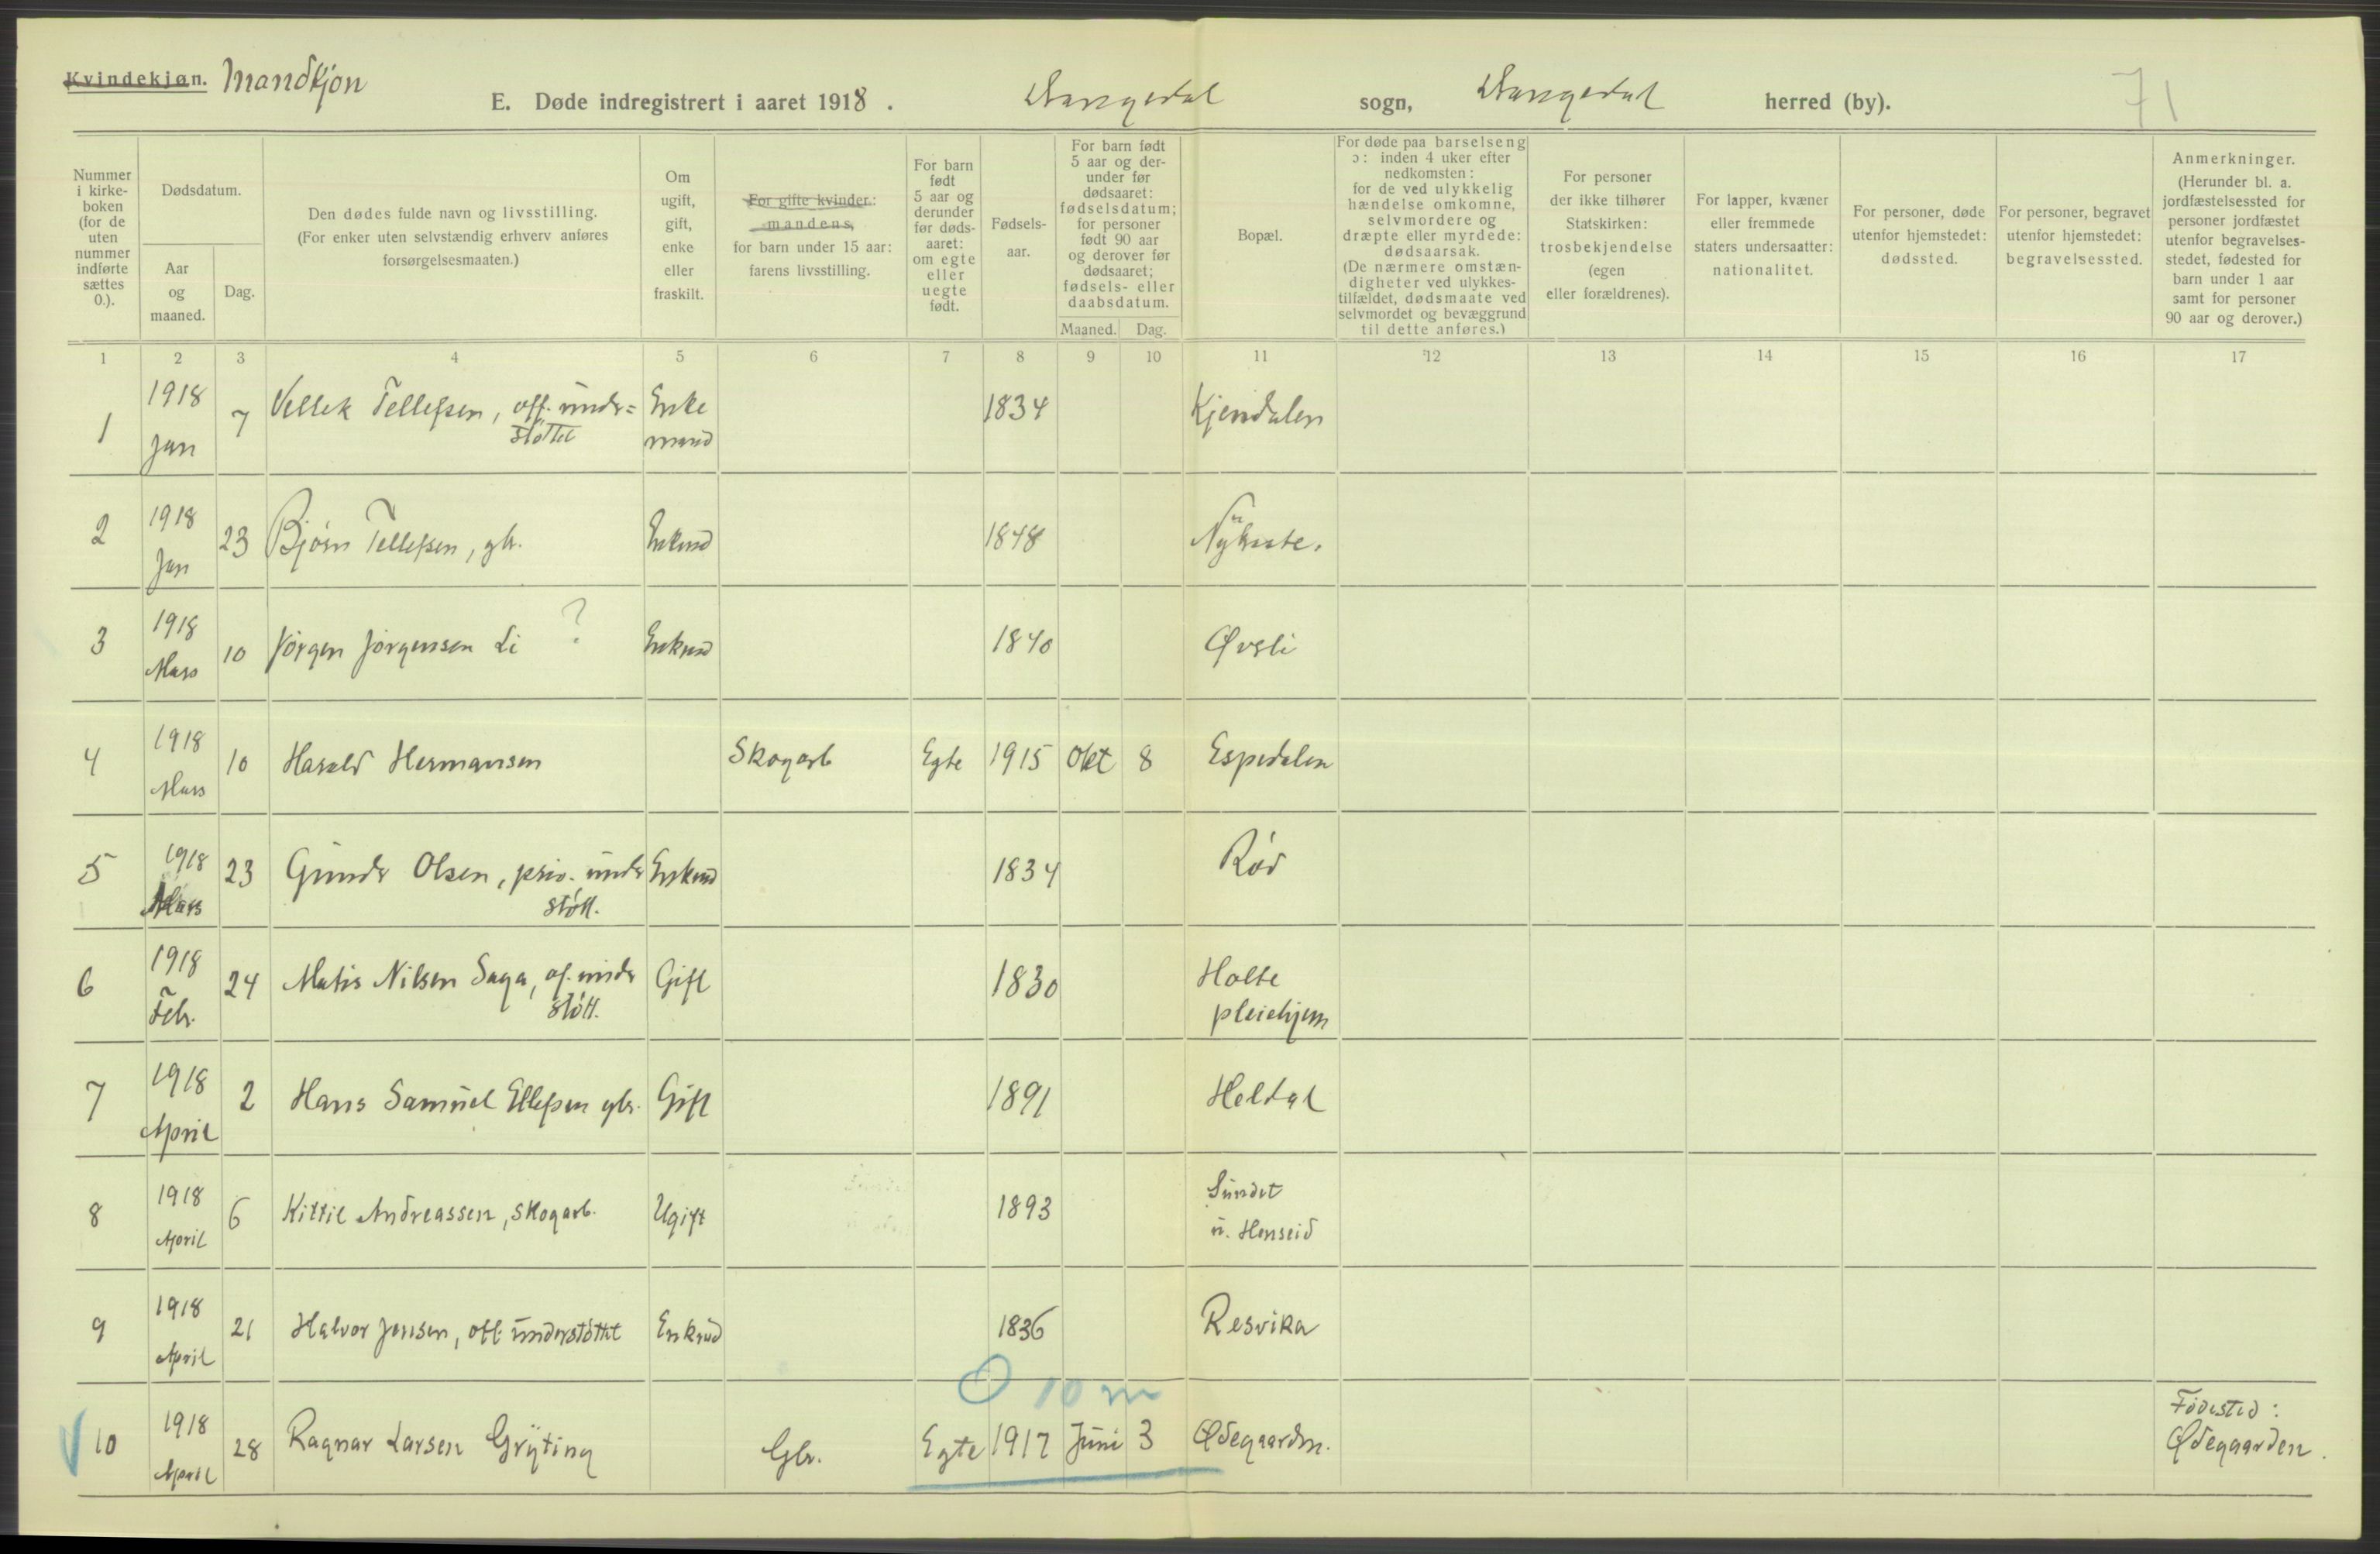 Kvindekjøn. Mandkjøn
E. Døde indregistrert i aaret 1918. Drangedal sogn, Drangedal herred (by). 71
Nummer i kirke- boken (for de uten nummer indførte sættes 0.).
Dødsdatum.
Aar og maaned.
Dag.
Den dødes fulde navn og livsstilling.
(For enker uten selvstændig erhverv anføres
forsørgelsesmaaten.)
Om ugift, gift, enke eller fraskilt.
For gifte kvinder: mandens, for barn under 15 aar: farens livsstilling.
For barn født 5 aar og derunder før døds- aaret: om egte eller uegte født.
Fødsels- aar.
For barn født 5 aar og der- under før dødsaaret: fødselsdatum; for personer født 90 aar og derover før dødsaaret; fødsels- eller daabsdatum.
Maaned. Dag.
Bopæl.
For døde paa barselseng ɔ: inden 4 uker efter nedkomsten: for de ved ulykkelig hændelse omkomne, selvmordere og dræpte eller myrdede: dødsaarsak. (De nærmere omstæn- digheter ved ulykkes- tilfældet, dødsmaate ved selvmordet og bevæggrund til dette anføres.)
For personer der ikke tilhører Statskirken: trosbekjendelse (egen eller forældrenes).
For lapper, kvæner eller fremmede staters undersaatter: nationalitet.
For personer, døde utenfor hjemstedet: dødssted.
For personer, begravet utenfor hjemstedet: begravelsessted.
Anmerkninger. (Herunder bl. a. jordfæstelsessted for personer jordfæstet utenfor begravelses- stedet, fødested for barn under 1 aar samt for personer 90 aar og derover.)
1 2 3 4 5 6 7 8 9 10 11 12 13 14 15 16 17
1 1918 Jan 7 Vellek Tellefsen, off. under= støttet Enke mand 1834 Kjendalen
2 1918 Jan 23 Bjørn Tellefsen, gbr. Enkmd 1848
3 1918 Mars 10 Jørgen Jørgensen Li ? Enkmd 1840 Øvsli
4 1918 Mars 10 Harald Hermansen Skogarb Egte 1915 Okt 8 Espedalen
5 1918 Mars 23 Gunder Olsen, priv. under støtt. Enkmd 1834 Rød
6 1918 Febr. 24 Matis Nilsen Saga, of. under støtt. Gift 1830 Holte pleiehjem
7 1918 April 2 Hans Samuel Ellefsen gbr. Gift 1891 Heldal
8 1918 April 6 Kittil Andreassen, skogarb. Ugift 1893 Sundet u. Henseid
9 1918 April 21 Halvor Jensen, off. understøttet Enkmd 1836 Resvika
0 10 m
10 1918 April 28 Ragnar Larsen Gryting Gbr. Egte 1917 Juni 3 Ødegaarden. Fødested: Ødegaarden.